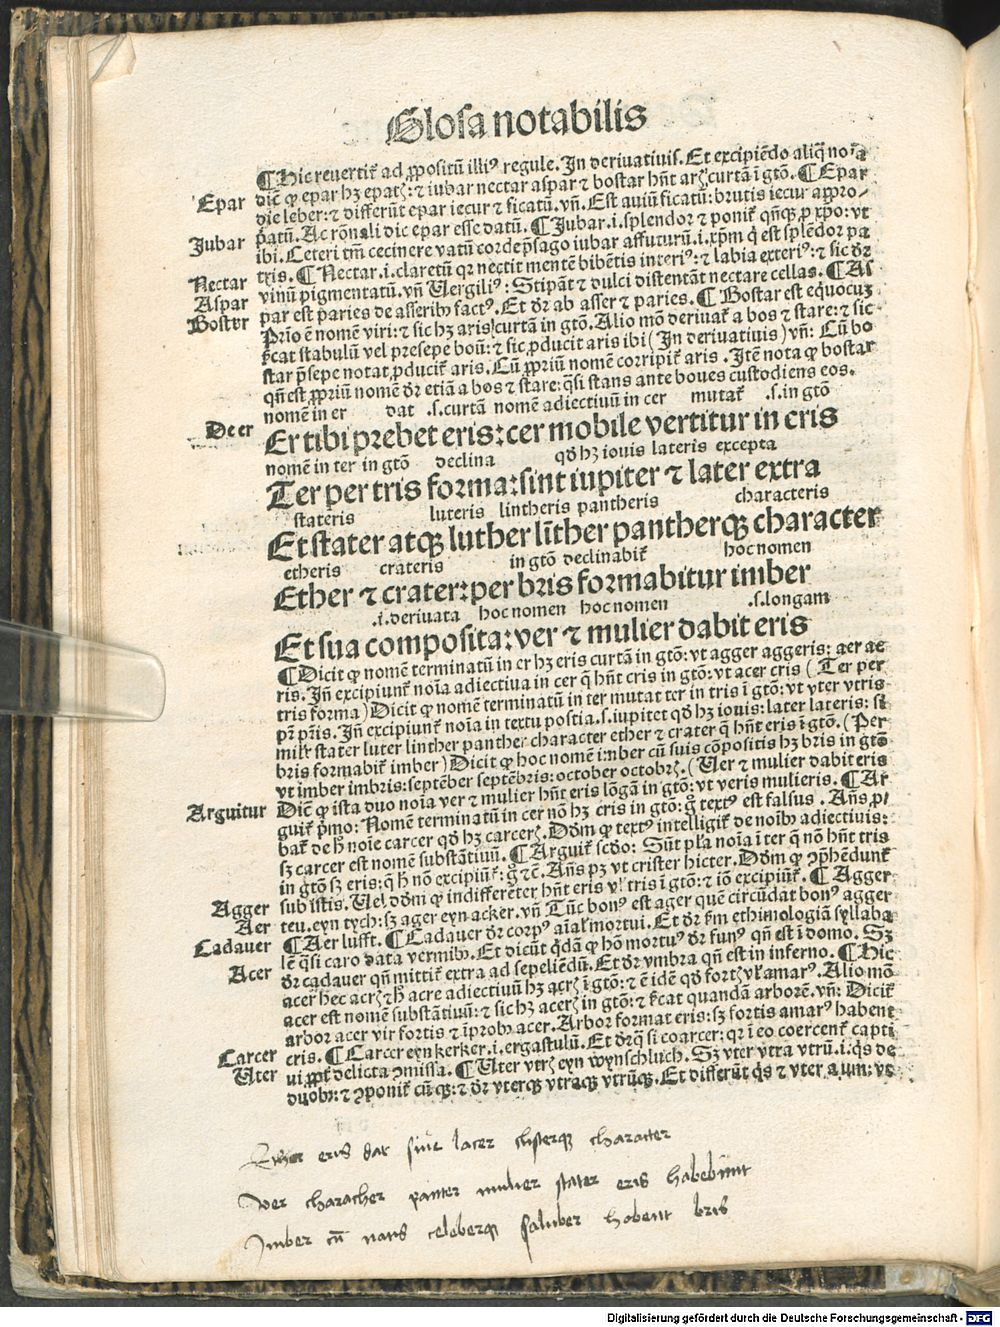 Glosa notabilis
¶ Hic revertit᷑ ad ꝓpositū illiꝰ regule. In derivativis. Et excipiēdo aliq̄ noīa
Epar dic̄ ꝙ epar hꝫ epatꝭ: ⁊ iubar nectar aspar ⁊ bostar hn̄t arꝭ curtā ī gtō. ¶ Epar
die leber: ⁊ differūt epar iecur ⁊ ficatū. vn̄. Est aviū ficatū: brutis iecur appro-
Jubar p̄atū. Ac rōnali dic epar esse datū. ¶ Jubar .i. splendor ⁊ ponit᷑ qn̄qꝫ ꝓ xp̄o: vt
ibi. Ceteri tm̄ cecinere vatū corde p̄sago iubar affuturū .i. xp̄m q̇ est splēdor pa
Nectar tris. ¶ Nectar .i. claretū qꝛ nectit mentē bibētis interiꝰ: ⁊ labia exteriꝰ: ⁊ sic dr̄
Aspar vinū pigmentatū. vn̄ Vergiliꝰ: Stipāt ⁊ dulci distentāt nectare cellas. ¶ As
Bostar par est paries de asseribꝰ factꝰ. Et dr̄ ab asser ⁊ paries. ¶ Bostar est equocuꝫ
Prīo ē nomē viri: ⁊ sic hꝫ aris curtā in gtō. Alio mō derivat᷑ a bos ⁊ stare: ⁊ sic
s̄cat stabulū vel presepe boū: ⁊ sic ꝓducit aris ibi (In derivativis) vn̄: Cū bo
star p̄sepe notat, ꝓducit᷑ aris. Cū ꝓpriū nomē corripit᷑ aris. Itē nota ꝙ bostar
qn̄ est ꝓpriū nomē dr̄ etiā a bos ⁊ stare: q̄si stans ante boues custodiens eos.
nomē in er dat .s. curtā nomē adiectiuū in cer mutat᷑ .s. in gtō
De er Er tibi prebet eris: cer mobile vertitur in cris
nomē in ter in gtō declina qd̄ hꝫ iouis lateris excepta
Ter per tris forma: sint iupiter ⁊ later extra
stateris luteris lintheris pantheris characteris
Et stater atqꝫ luther līther pantherqꝫ character
etheris crateris in gtō declinabit᷑ hoc nomen
Ether ⁊ crater: per bris formabitur imber
.i. derivata hoc nomen hoc nomen .s. longam
Et sua composita: ver ⁊ mulier dabit eris
¶ Dicit ꝙ nomē terminatū in er hꝫ eris curtā in gtō: vt agger aggeris: aer ae
ris. Jn̄ excipiunt᷑ noīa adiectiua in cer q̄ hn̄t cris in gtō: vt acer cris (Ter per
tris forma) Dicit ꝙ nomē terminatū in ter mutat ter in tris ī gtō: vt vter vtris
pr̄ pr̄is. Jn̄ excipiunt᷑ noīa in textu postia .s. iupitet qd̄ hꝫ iouis: later lateris: si
milr̄ stater luter linther panther character ether ⁊ crater q̄ hn̄t eris ī gtō. (Per
bris formabit᷑ imber) Dicit ꝙ hoc nomē imber cū suis cōpositis hꝫ bris in gtō
vt imber imbris: septēber septēbris: october octobrꝭ. (Ver ⁊ mulier dabit eris
Arguitur Dic̄ ꝙ ista duo noīa ver ⁊ mulier hn̄t eris lōgā in gtō: vt veris mulieris. ¶ Ar
guit᷑ p̄mo: Nomē terminatū in cer nō hꝫ cris in gtō: g̊ textꝰ est falsus. Añs p̄r
bat᷑ de h̄ noīe carcer qd̄ hꝫ carcerꝭ. Dōm ꝙ textꝰ intelligit᷑ de noībꝰ adiectiuis:
sꝫ carcer est nomē substātiuū. ¶ Arguit᷑ scd̄o: Sūt pl̄a noīa ī ter q̄ nō hn̄t tris
in gtō sꝫ eris: q̄ h̄ nō excipiūt᷑: g̊ ⁊c̄. Añs pꝫ vt crister hicter. Dōm ꝙ ꝯp̄hēdunt᷑
sub istis. Vel dōm ꝙ indifferēter hn̄t eris vl̄ tris ī gtō: ⁊ iō excipiūt᷑. ¶ Agger
Agger teu. eyn tych: sꝫ ager eyn acker. vn̄ Tūc bonꝰ est ager quē circūdat bonꝰ agger
Aer ¶ Aer lufft. ¶ Cadauer dr̄ corpꝰ aīalꝭ mortui. Et dr̄ s̄m ethimologiā syllaba
Cadauer lē q̄si caro data vermibꝰ. Et dicūt q̇dā ꝙ hō mortuꝰ dr̄ funꝰ qn̄ est ī domo. Sꝫ
dr̄ cadauer qn̄ mittit᷑ extra ad sepeliēdū. Et dr̄ vmbra qn̄ est in inferno. ¶ Hic
Acer acer hec acrꝭ ⁊ h̄ acre adiectiuū hꝫ acrꝭ ī gtō: ⁊ ē idē qd̄ fortꝭ vl̄ amarꝰ. Alio mō
acer est nomē substātiuū: ⁊ sic hꝫ acerꝭ in gtō: ⁊ s̄cat quandā arborē. vn̄: Dicit᷑
arbor acer vir fortis ⁊ īprobꝰ acer. Arbor format eris: sꝫ fortis amarꝰ habent
Carcer cris. ¶ Carcer eyn kerker .i. ergastulū. Et dr̄ q̄si coarcer: qꝛ ī eo coercent᷑ capti
Vter ui ꝓpt᷑ delicta ꝯmissa. ¶ Vter vtrꝭ eyn wynschluch. Sꝫ vter vtra vtrū .i. q̇s de
duobꝰ: ⁊ ꝯponit᷑ cū qꝫ: ⁊ dr̄ vterqꝫ vtraqꝫ vtrūqꝫ. Et differūt q̇s ⁊ vter aliter: vt
eris dat siue lacer clisterqꝫ character
Ver character panter mulier stater eris habebunt
Imber cū natis celeberqꝫ saluber habent bris
Digitalisierung gefördert durch die Deutsche Forschungsgemeinschaft - DFG